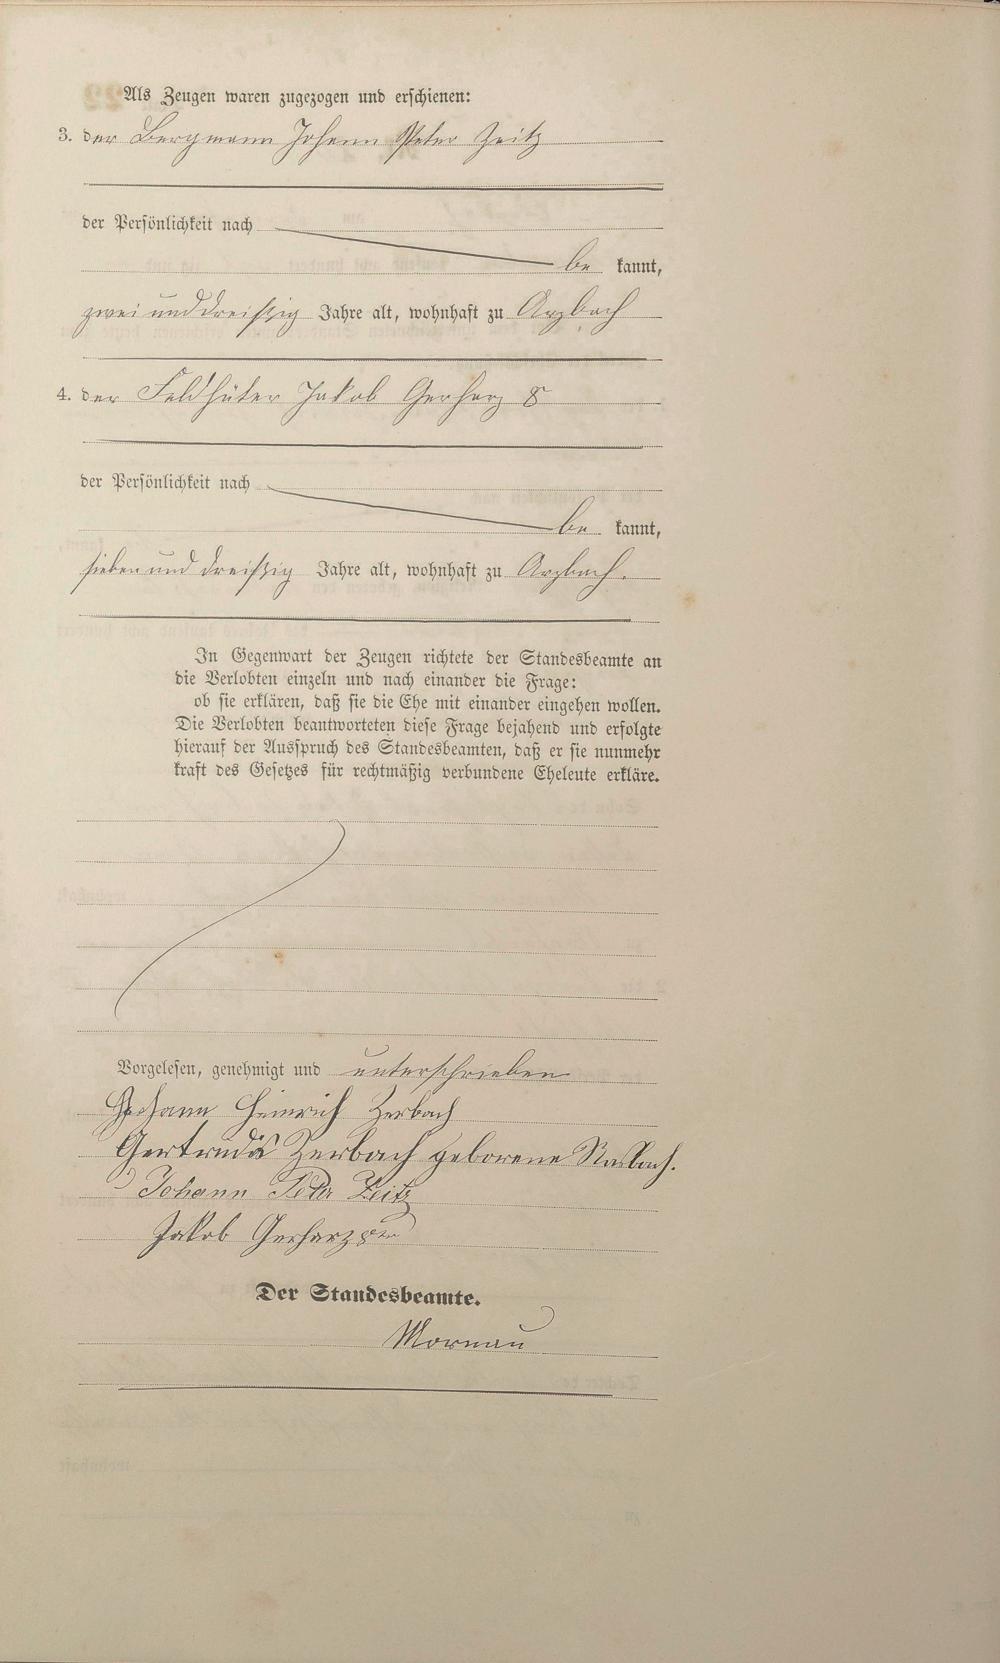 Als Zeugen waren zugezogen und erschienen:
3. der Bergmann Johann Peter Zeitz
der Persönlichkeit nach
be kannt,
zwei und dreißig Jahre alt, wohnhaft zu Arzbach
4. der Feldhüter Jakob Gerharz 8
der Persönlichkeit nach
be kannt,
sieben und dreißig Jahre alt, wohnhaft zu Arzbach.
In Gegenwart der Zeugen richtete der Standesbeamte an
die Verlobten einzeln und nach einander die Frage:
ob sie erklären, daß sie die Ehe mit einander eingehen wollen.
Die Verlobten beantworteten diese Frage bejahend und erfolgte
hierauf der Ausspruch des Standesbeamten, daß er sie nunmehr
kraft des Gesetzes für rechtmäßig verbundene Eheleute erkläre.
Vorgelesen, genehmigt und unterschrieben
Johann Heinrich Zerbach
Gertruda Zerbach geborene
Johann Peter Zeitz
Jakob Gerharz 8ter
Der Standesbeamte.
Mornau